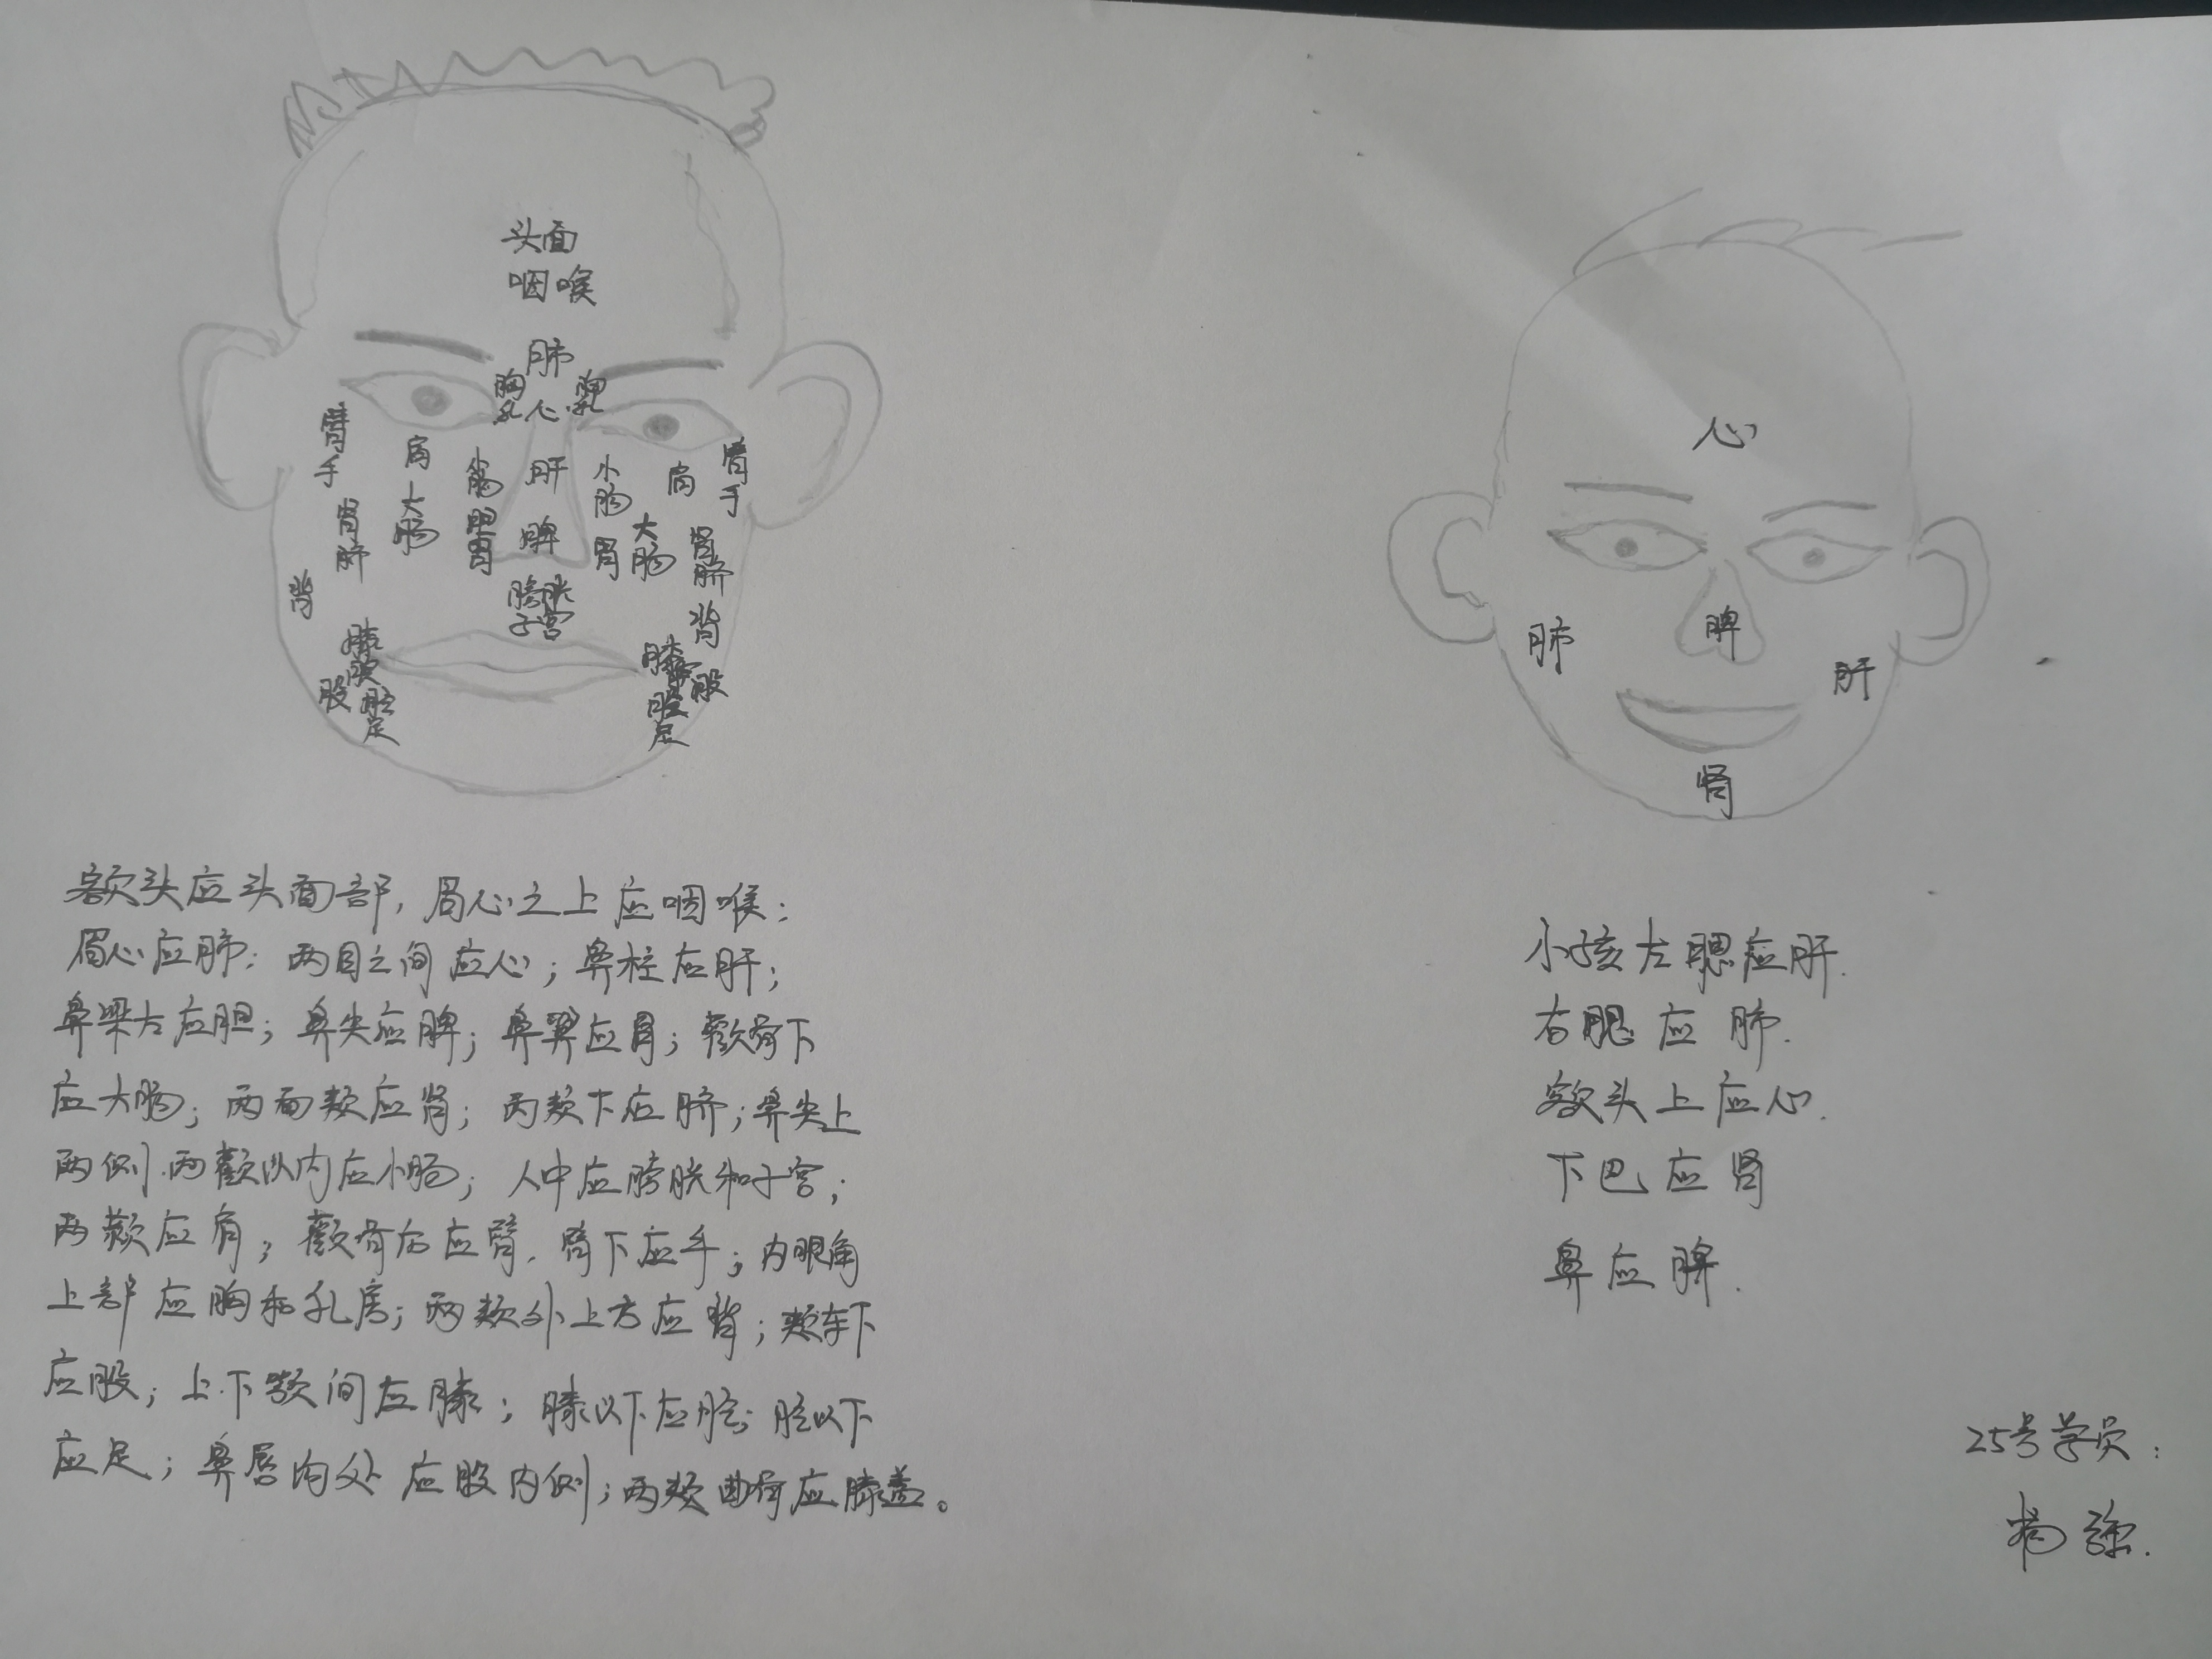 头面
咽喉
肺
胸 胸
乳 心 乳
臂 肩 小肠 肝 小肠 肩 臂
手 大肠 胆 脾 大肠 手
肾 胃 胃 肾
脐 膀胱 脐
背 子宫 背
膝 膝
股 股
足 足
额头应头面部,眉心之上应咽喉;
眉心应肺;两目之间应心;鼻柱应肝;
鼻梁左应胆;鼻尖应脾;鼻翼应胃;颧骨下
应大肠;两面颊应肾;两颊下应脐;鼻尖上
两侧.两颧以内应小肠;人中应膀胱和子宫;
两颧应肩;颧骨后应臂.臂下应手;内眼角
上部应胸和乳房;两颊外上方应背;颊车下
应股;上.下颚间应膝;膝以下应胫;胫以下
应足;鼻唇沟处应股内侧;两颊曲骨应膝盖。
心
肺 脾 肝
肾
小孩左腮应肝.
右腮应肺.
额头上应心.
下巴应肾
鼻应脾.
25号学员:
杨